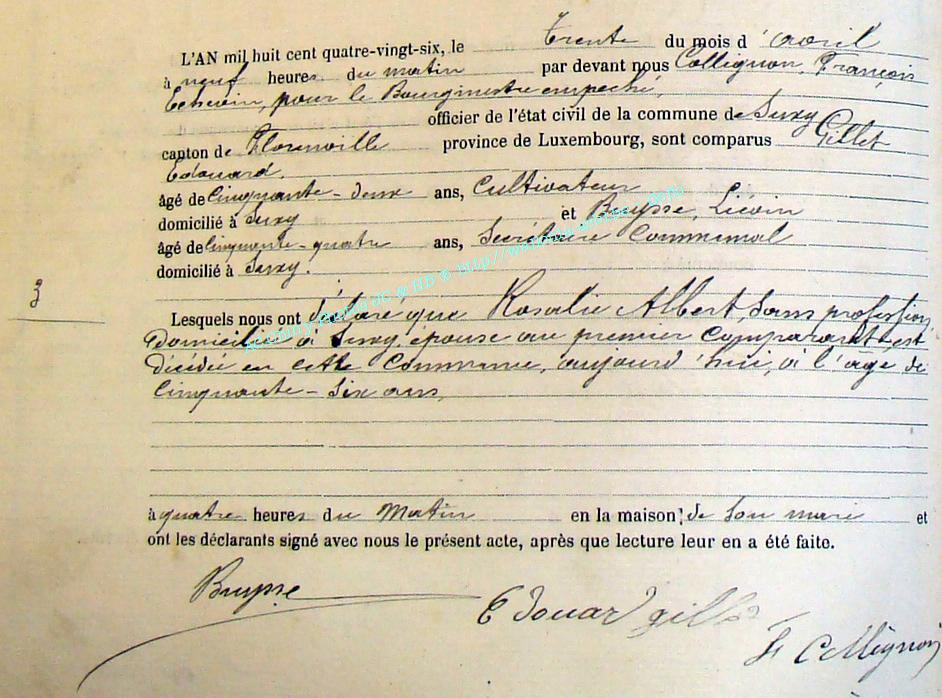 L'AN mil huit cent quatre-vingt-six, le trente du mois d'avril
à neuf heures du matin par devant nous Collignon, François
Echevin, pour le Bourgmestre empeché,
officier de l'état civil de la commune de Suxy
canton de Florenville province de Luxembourg, sont comparus Gillet
Edouard.
âgé de cinquante-deux ans, Cultivateur
domicilié à Suxy et Buysse, Liévin
âgé de cinquante-quatre ans, Secrétaire Communal
domicilié à Suxy.
3
Lesquels nous ont déclaré que Rosalie Albert, sans profession
domiciliée à Suxy, épouse au premier comparant, est
décédée en cette Commune, aujourd'hui, à l'âge de
cinquante-six ans,
à quatre heures du Matin en la maison de son mari et
ont les déclarants signé avec nous le présent acte, après que lecture leur en a été faite.
Buysse
Edouard gillet
F Collignon